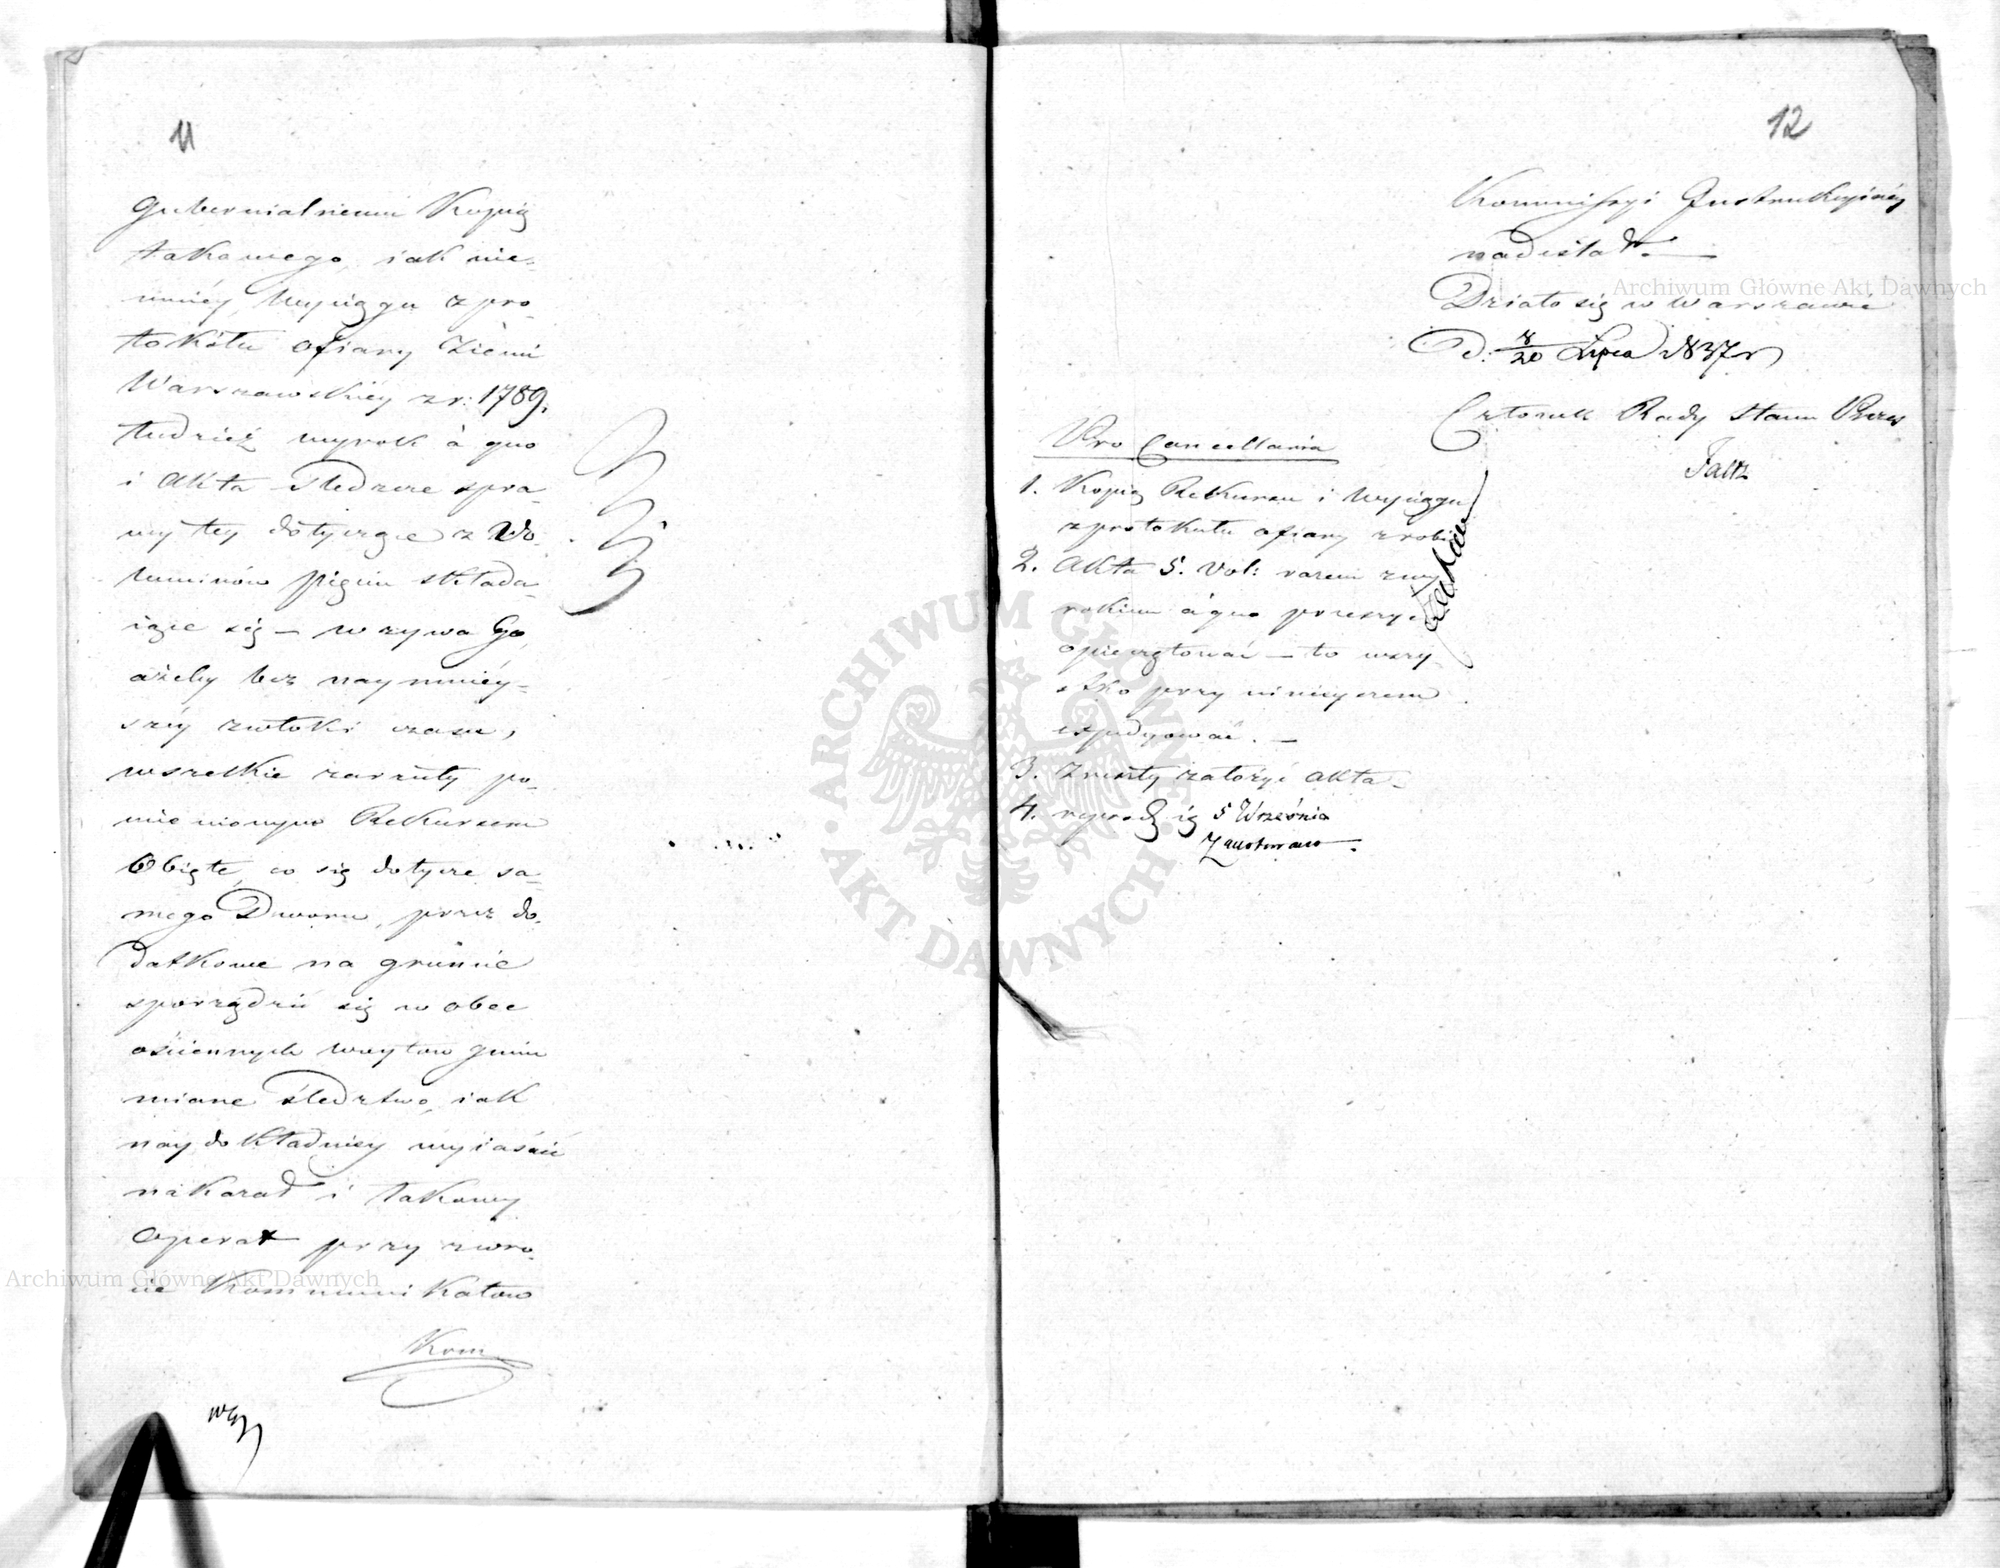 11
Gubernialnemu Kopią
takowego, iak nie-
mniéy, Wyciągu z pro-
tokółu ofiary Ziemi
Warszawskiéy z r: 1789.
tudzież wyrok à quo
i Akta śledcze spra-
wy tey dotyczące z Vo-
luminów pięciu składa-
iące się – wzywa Go,
ażeby bez naymniéy-
széy zwłoki czasu,
wszelkie zarzuty po-
mienionym Rekursem
Obięte, co się dotycze sa-
mego Dworu, przez do-
datkowe na gruncie
sporządzić się w obec
ościennych Woytow gmin
miane śledztwo, iak
naydokładniey wyiaśnić
nakazał i takowy
Operat przy zwro-
cie Kommunikatow
Kom
12
Kommissyi Instrukcyinéy
nadesłał. —
Działo się w Warszawie
D: 8/20 Lipca 1837 r
Członek Rady Stanu Prezes
Faltz
Pro Cancellaria
1. Kopią Rekursu i Wyciągu
z protokułu ofiary zrobić
2. Akta 5. Vol: razem z wy
rokiem à quo przeszyć
opieczętować – to wszy
stko przy ninieyszem
expedyować. —
3. Zreszty założyć Akta
4. 5 Września
Archiwum Główne Akt Dawnych
Archiwum Główne Akt Dawnych
ARCHIWUM GŁÓWNE AKT DAWNYCH